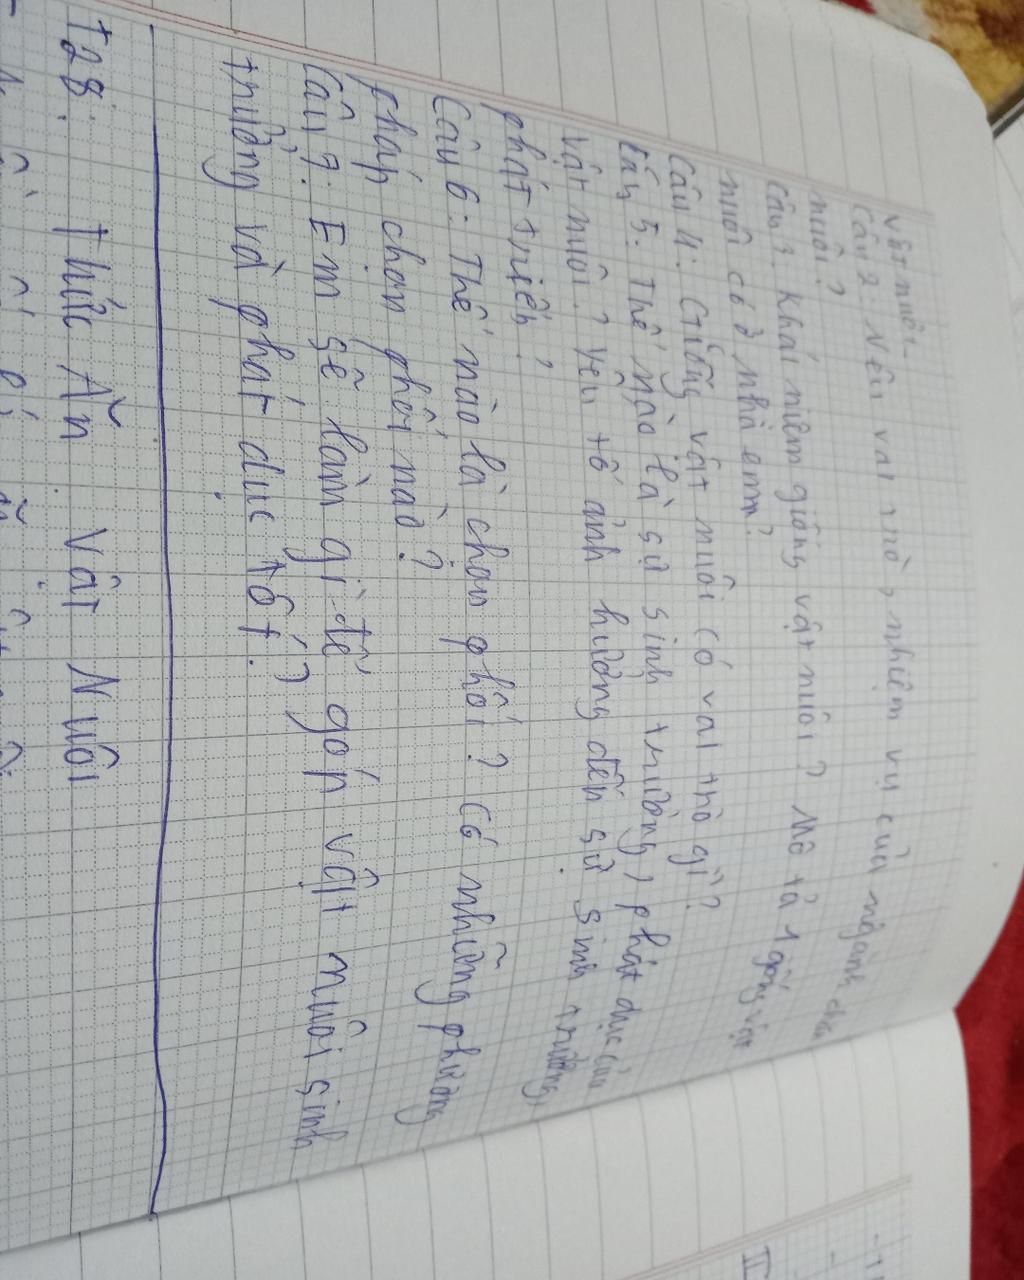 vật nuôi.
Câu 2: Nêu vai trò, nhiệm vụ của ngành chăn
nuôi?
Câu 3 Khái niệm giống vật nuôi? Mô tả 1 giống vật
nuôi có ở nhà em?
Câu 4: Giống vật nuôi có vai trò gì?
Câu 5. Thế nào là sự sinh trưởng, phát dục của
vật nuôi? Yếu tố ảnh hưởng đến sự sinh trưởng,
phát triển?
Câu 6: Thế nào là chọn phối? Có những phương
pháp chọn phối nào?
Câu 7: Em sẽ làm gì để góp vật nuôi sinh
trưởng và phát dục tốt?
T28: Thức Ăn Vật Nuôi
II